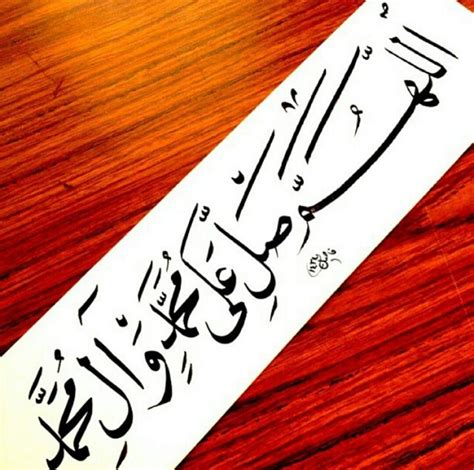 اَللّٰهُمَّ صَلِّ عَلَى مُحَمَّدٍ وَآلِ مُحَمَّد